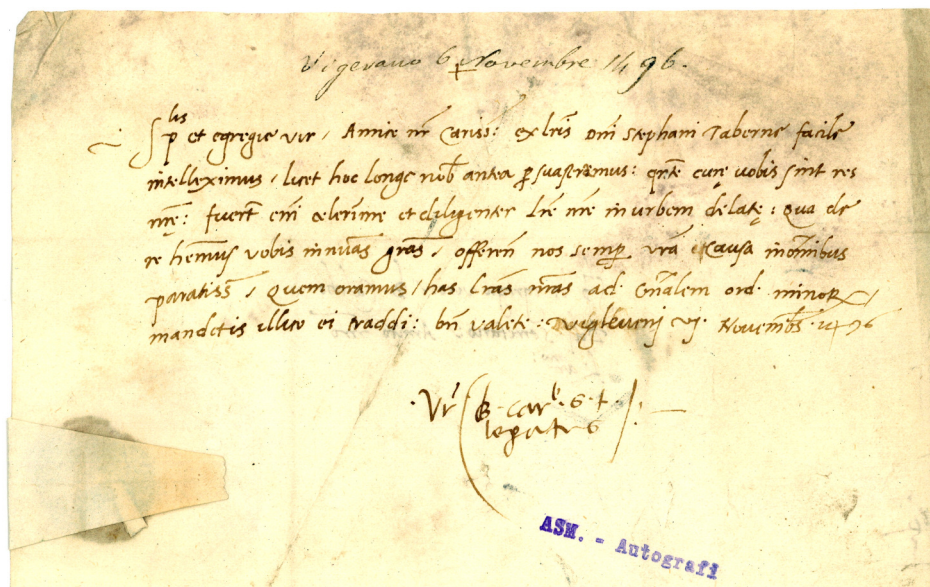 Vigevano 6 Novembre 1496.
Sp lis et egregie vir, Amice nr cariss: ex lris Dni Stephani Taberne facile
intelleximus, licet hoc longe nob antea psuaseramus: qte cure vobis sint res
nrę: fuert eni celerime et diligenter lre nre in urbem delatę: Qua de
re hemus vobis gras, offeren nos semp vra causa in omibus
paratiss, Quem oramus, has lras nras ad Gnalem ord. minor
mandetis illico ei traddi: bn valete: Vigleveni vj. Novembs. 1496
Vr B. Car. S. +
legatus
ASM. - Autografi